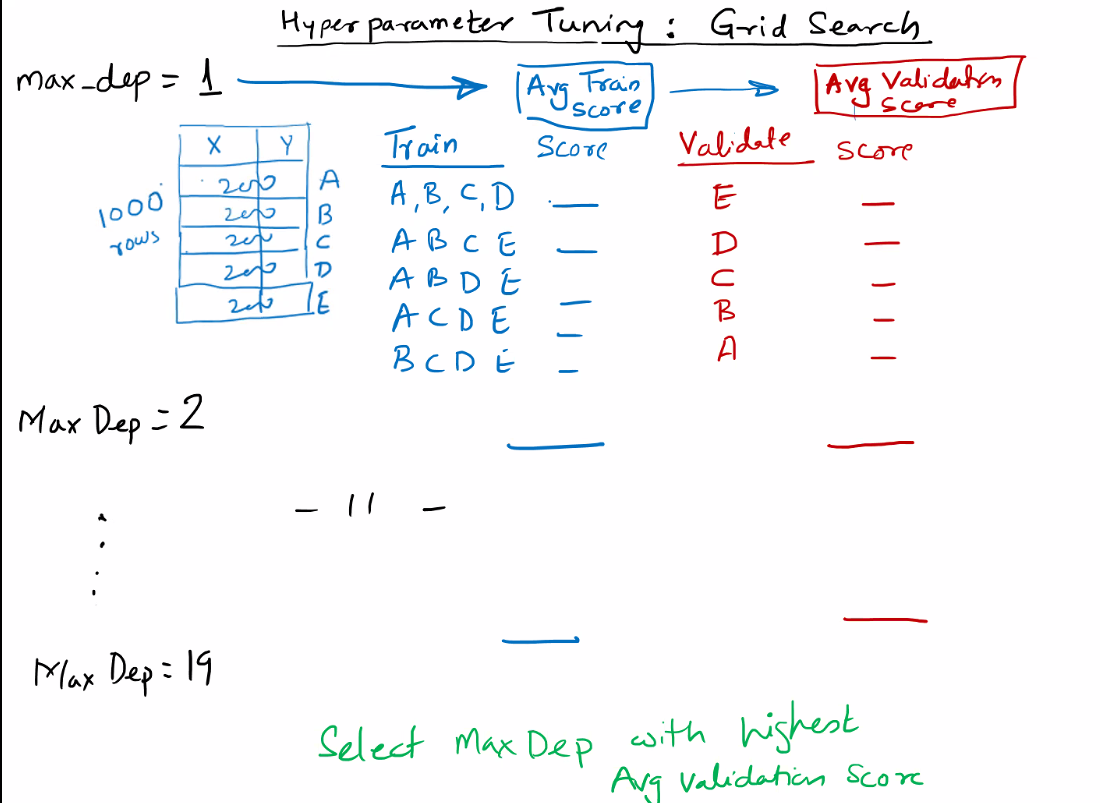 Hyperparameter Tuning : Grid Search
max_dep = 1
Avg Train Score
Avg Validation Score
X Y
200 A
200 B
200 C
200 D
200 E
1000 rows
Train Score Validate Score
A, B, C, D — E —
A B C E — D —
A B D E — C —
A C D E — B —
B C D E — A —
Max Dep = 2
— 11 —
Max Dep = 19
Select Max Dep with highest
Avg validation Score